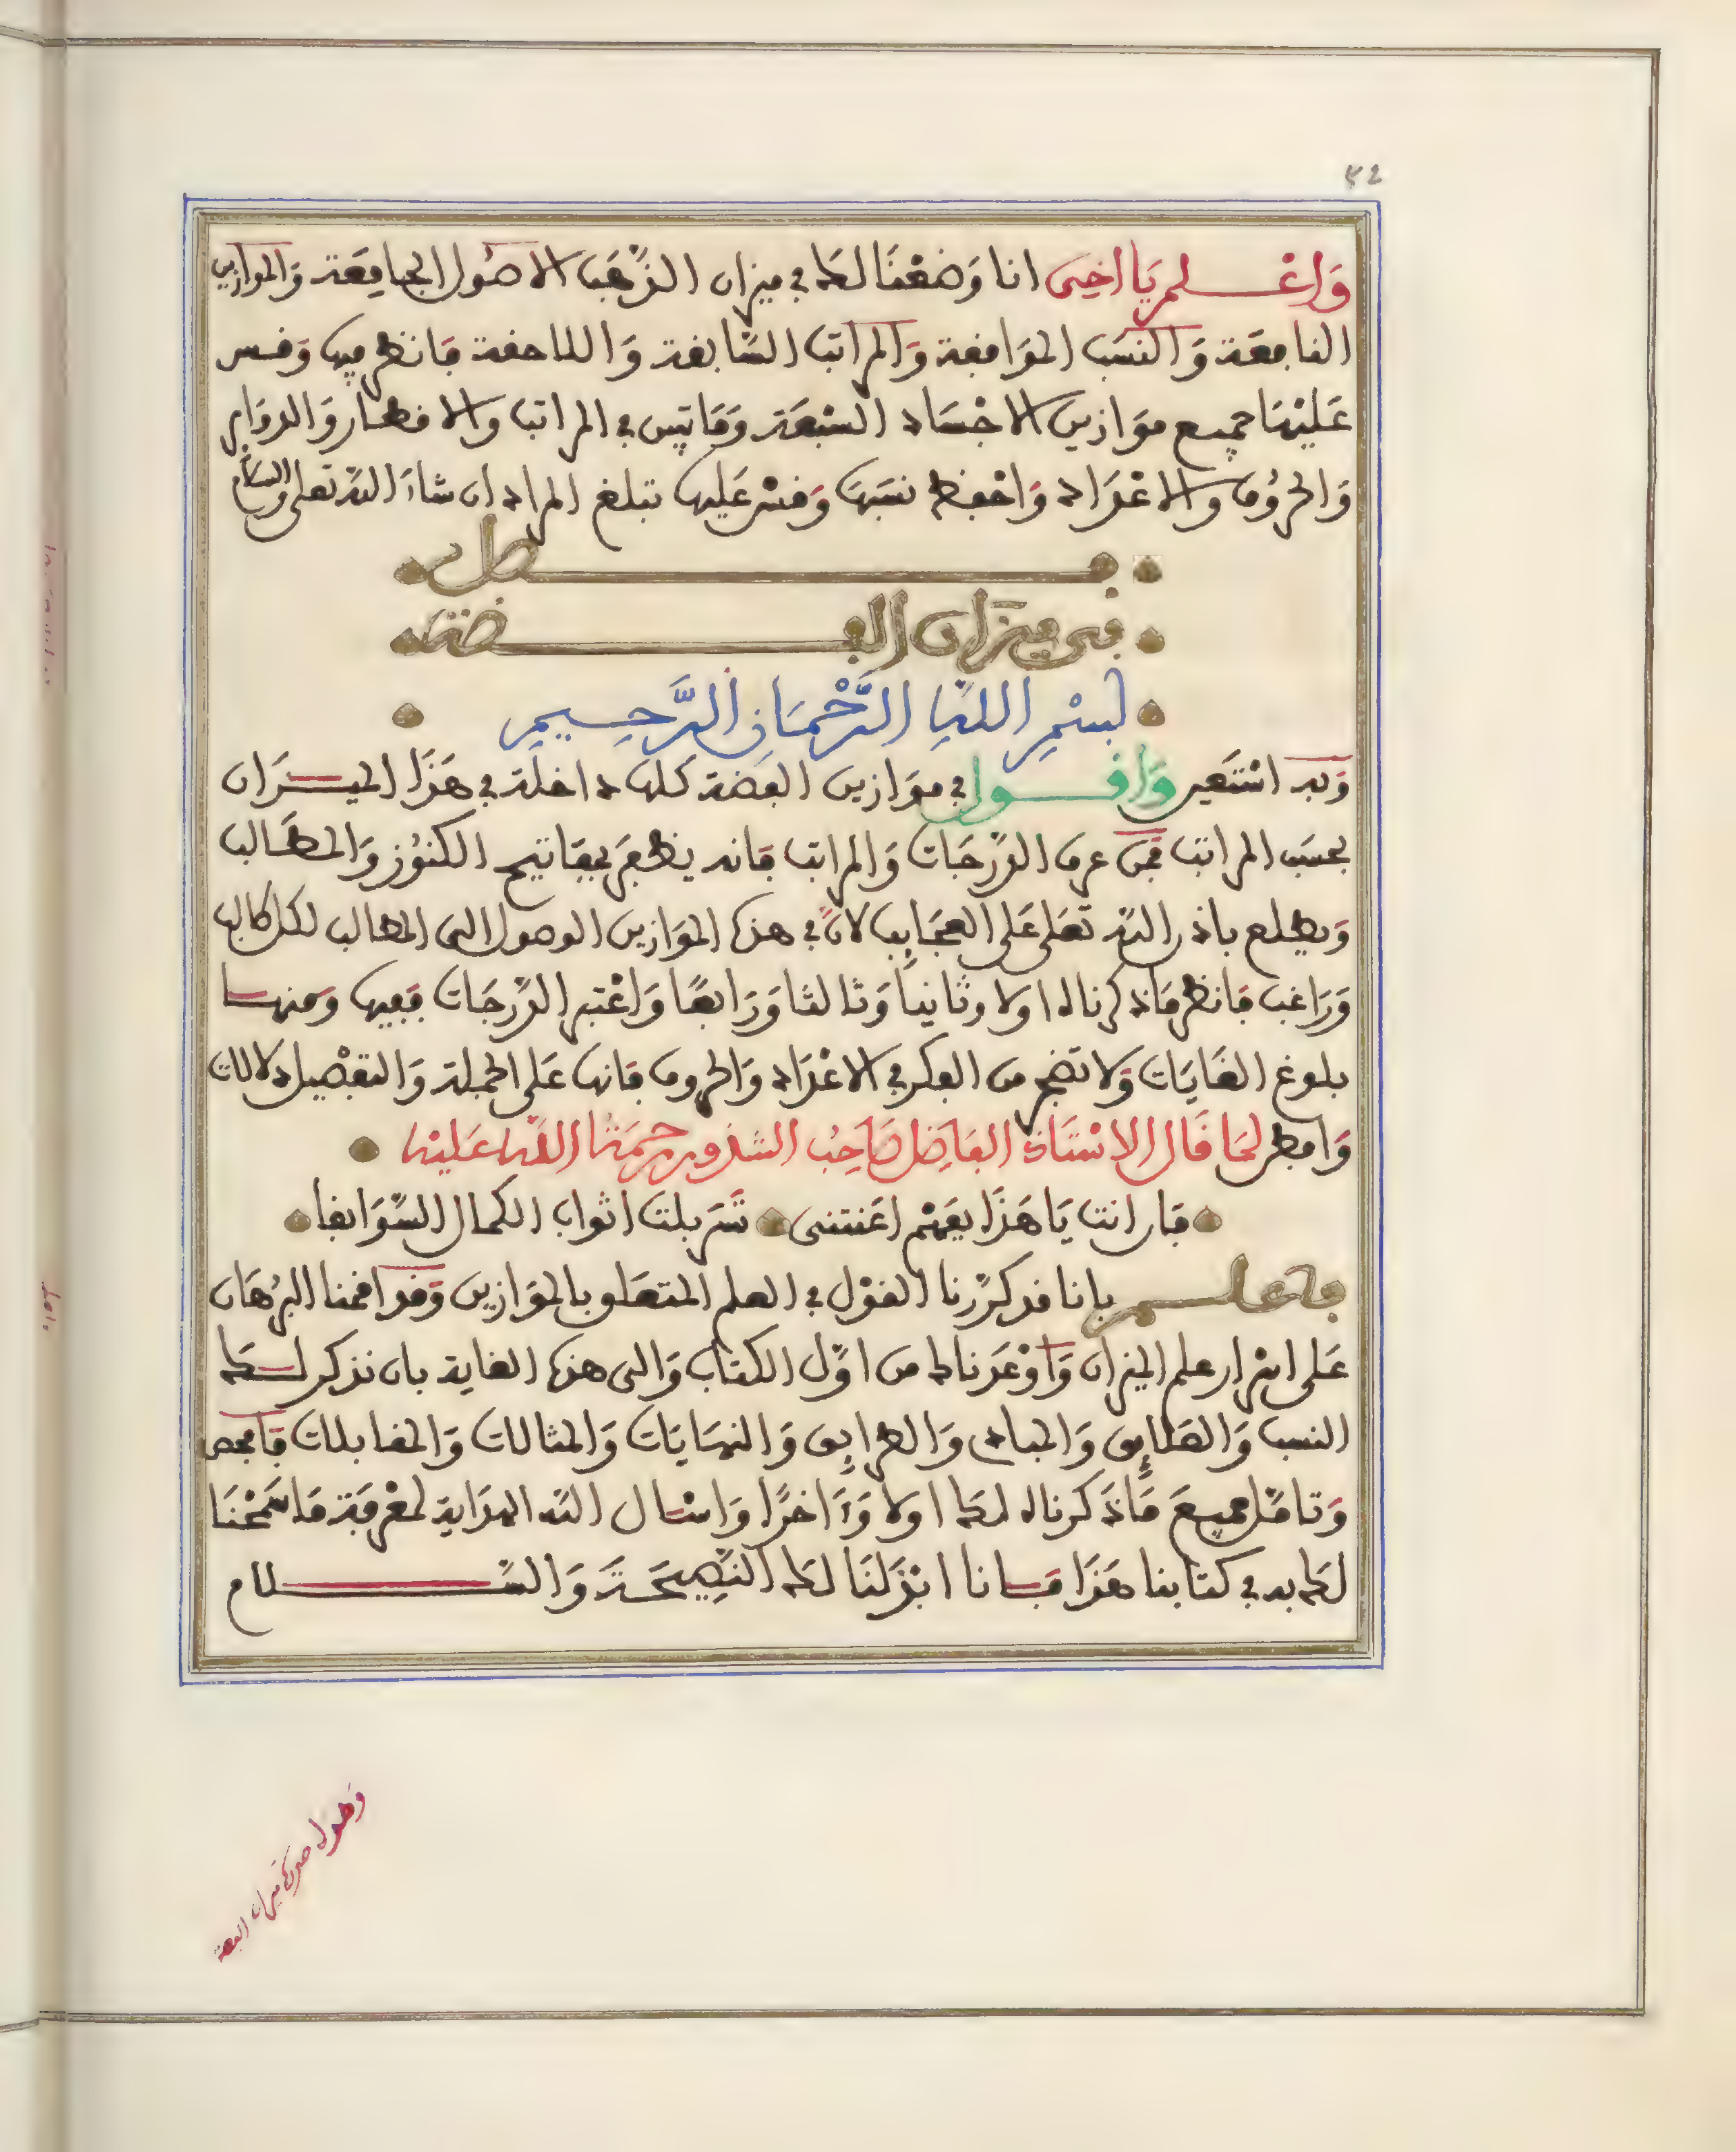 ٤٢
وَاعْلم يَا اخِى انا وَضعْنَا لك في ميزان الذَّهَب الاصُول الجامِعَة وَالموازين
النافِعَة وَالنسَب الموَافِقة وَالمراتب السَّابقة وَاللاحقة فانظر فيها وَقس
عَليْهَا جميع موَازين الاجْسَاد السّبْعَة وَمَا تيس في المراتب والاقطار وَالدوَاير
وَالحرُوف والاعْدَاد وَاحْفظ نسَبهَا وَقسْ عَليها تبلغ المراد ان شاءَ اللّه تعلى والسلام
فصل
في ميزان الفضة
بسْمِ اللهِ الرَّحْمَانِ الرَّحِيمِ
وَبه اسْتعَين وَاقول في موَازين الفضة كلها داخلة في هَذا الميزَان
بحسَب المراتب فمن عرف الدَّرجَات وَالمراتب فانه يظفَر بمفاتيح الكنوُز وَالمطالب
وَيطلع باذن اللّه تعَلى عَلى العجَايِب لانَّ في هذه الموَازين الوصول الى المطالب لكل طالب
وَرَاغب فانظر مَا ذكرناه اولا وثانياً وَثالثا وَرَابعًا وَاعْتبر الدَّرجَات ففيها وَمنها
بلوغ الغَايَات وَلا تضجر من الفكر في الاعْدَاد وَالحروف فانها عَلى الجملة وَالتفْصِيل دلالات
وَافطن لمَا قَال الاسْتَاذ الفاضِل صَاحِبُ الشذور رحمَة اللّه عَليْه
فان انت يَا هَذَا بفهْم اعَنتنى تسَرْبلت اثواب الكمال السَّوَابغا
فاعلم بانا قد كرَّرنا القوْل في العلم المتعَلق بالموَازين وَقد اقمنا البرْهَان
عَلى اسْرار علم الميزان وَاوْعَدناك من اوَّل الكتاب وَالى هذه الغاية بان نذكر لك
النسب وَالطبَايِع وَالمبادى وَالطرايِق وَالنهَايَات وَالمثالات وَالمقابلات فافحص
وَتامَّل جميعَ مَا ذَكرناه لك اولا وَءَاخرًا وَاسْال اللّه الهدَاية لمعْرفة مَا سَمحْنَا
لك به في كتابنا هَذَا فانا ابْذلنَا لك النَّصِيحَة وَالسَّلام